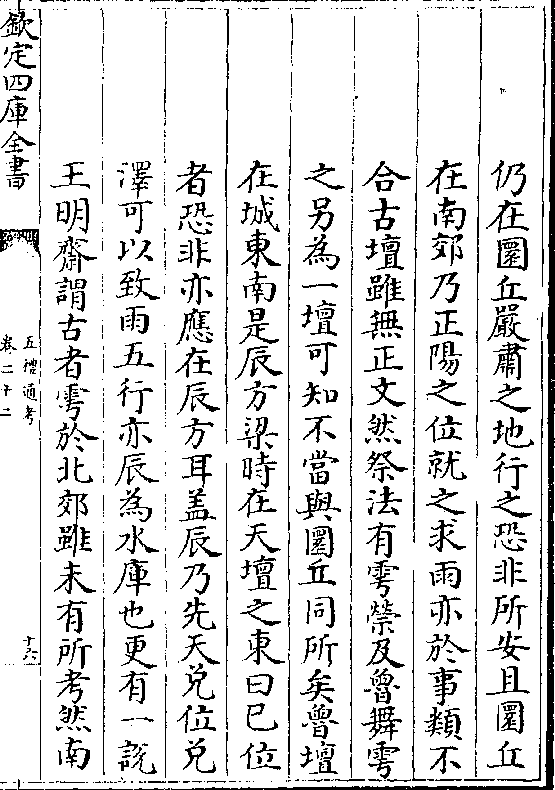 仍在圜丘嚴肅之地行之恐非所安且圜丘
在南郊乃正陽之位就之求雨亦於事類不
合古壇雖無正文然祭法有雩禜及魯舞雩
之另為一壇可知不當與圜丘同所矣魯壇
在城東南是辰方梁時在天壇之東曰巳位
者恐非亦應在辰方耳盖辰乃先天兌位兌
澤可以致雨五行亦辰為水庫也更有一説
王明齋謂古者雩於北郊雖未有所考然南
欽定四庫全書
五禮通考
卷二十二
十六